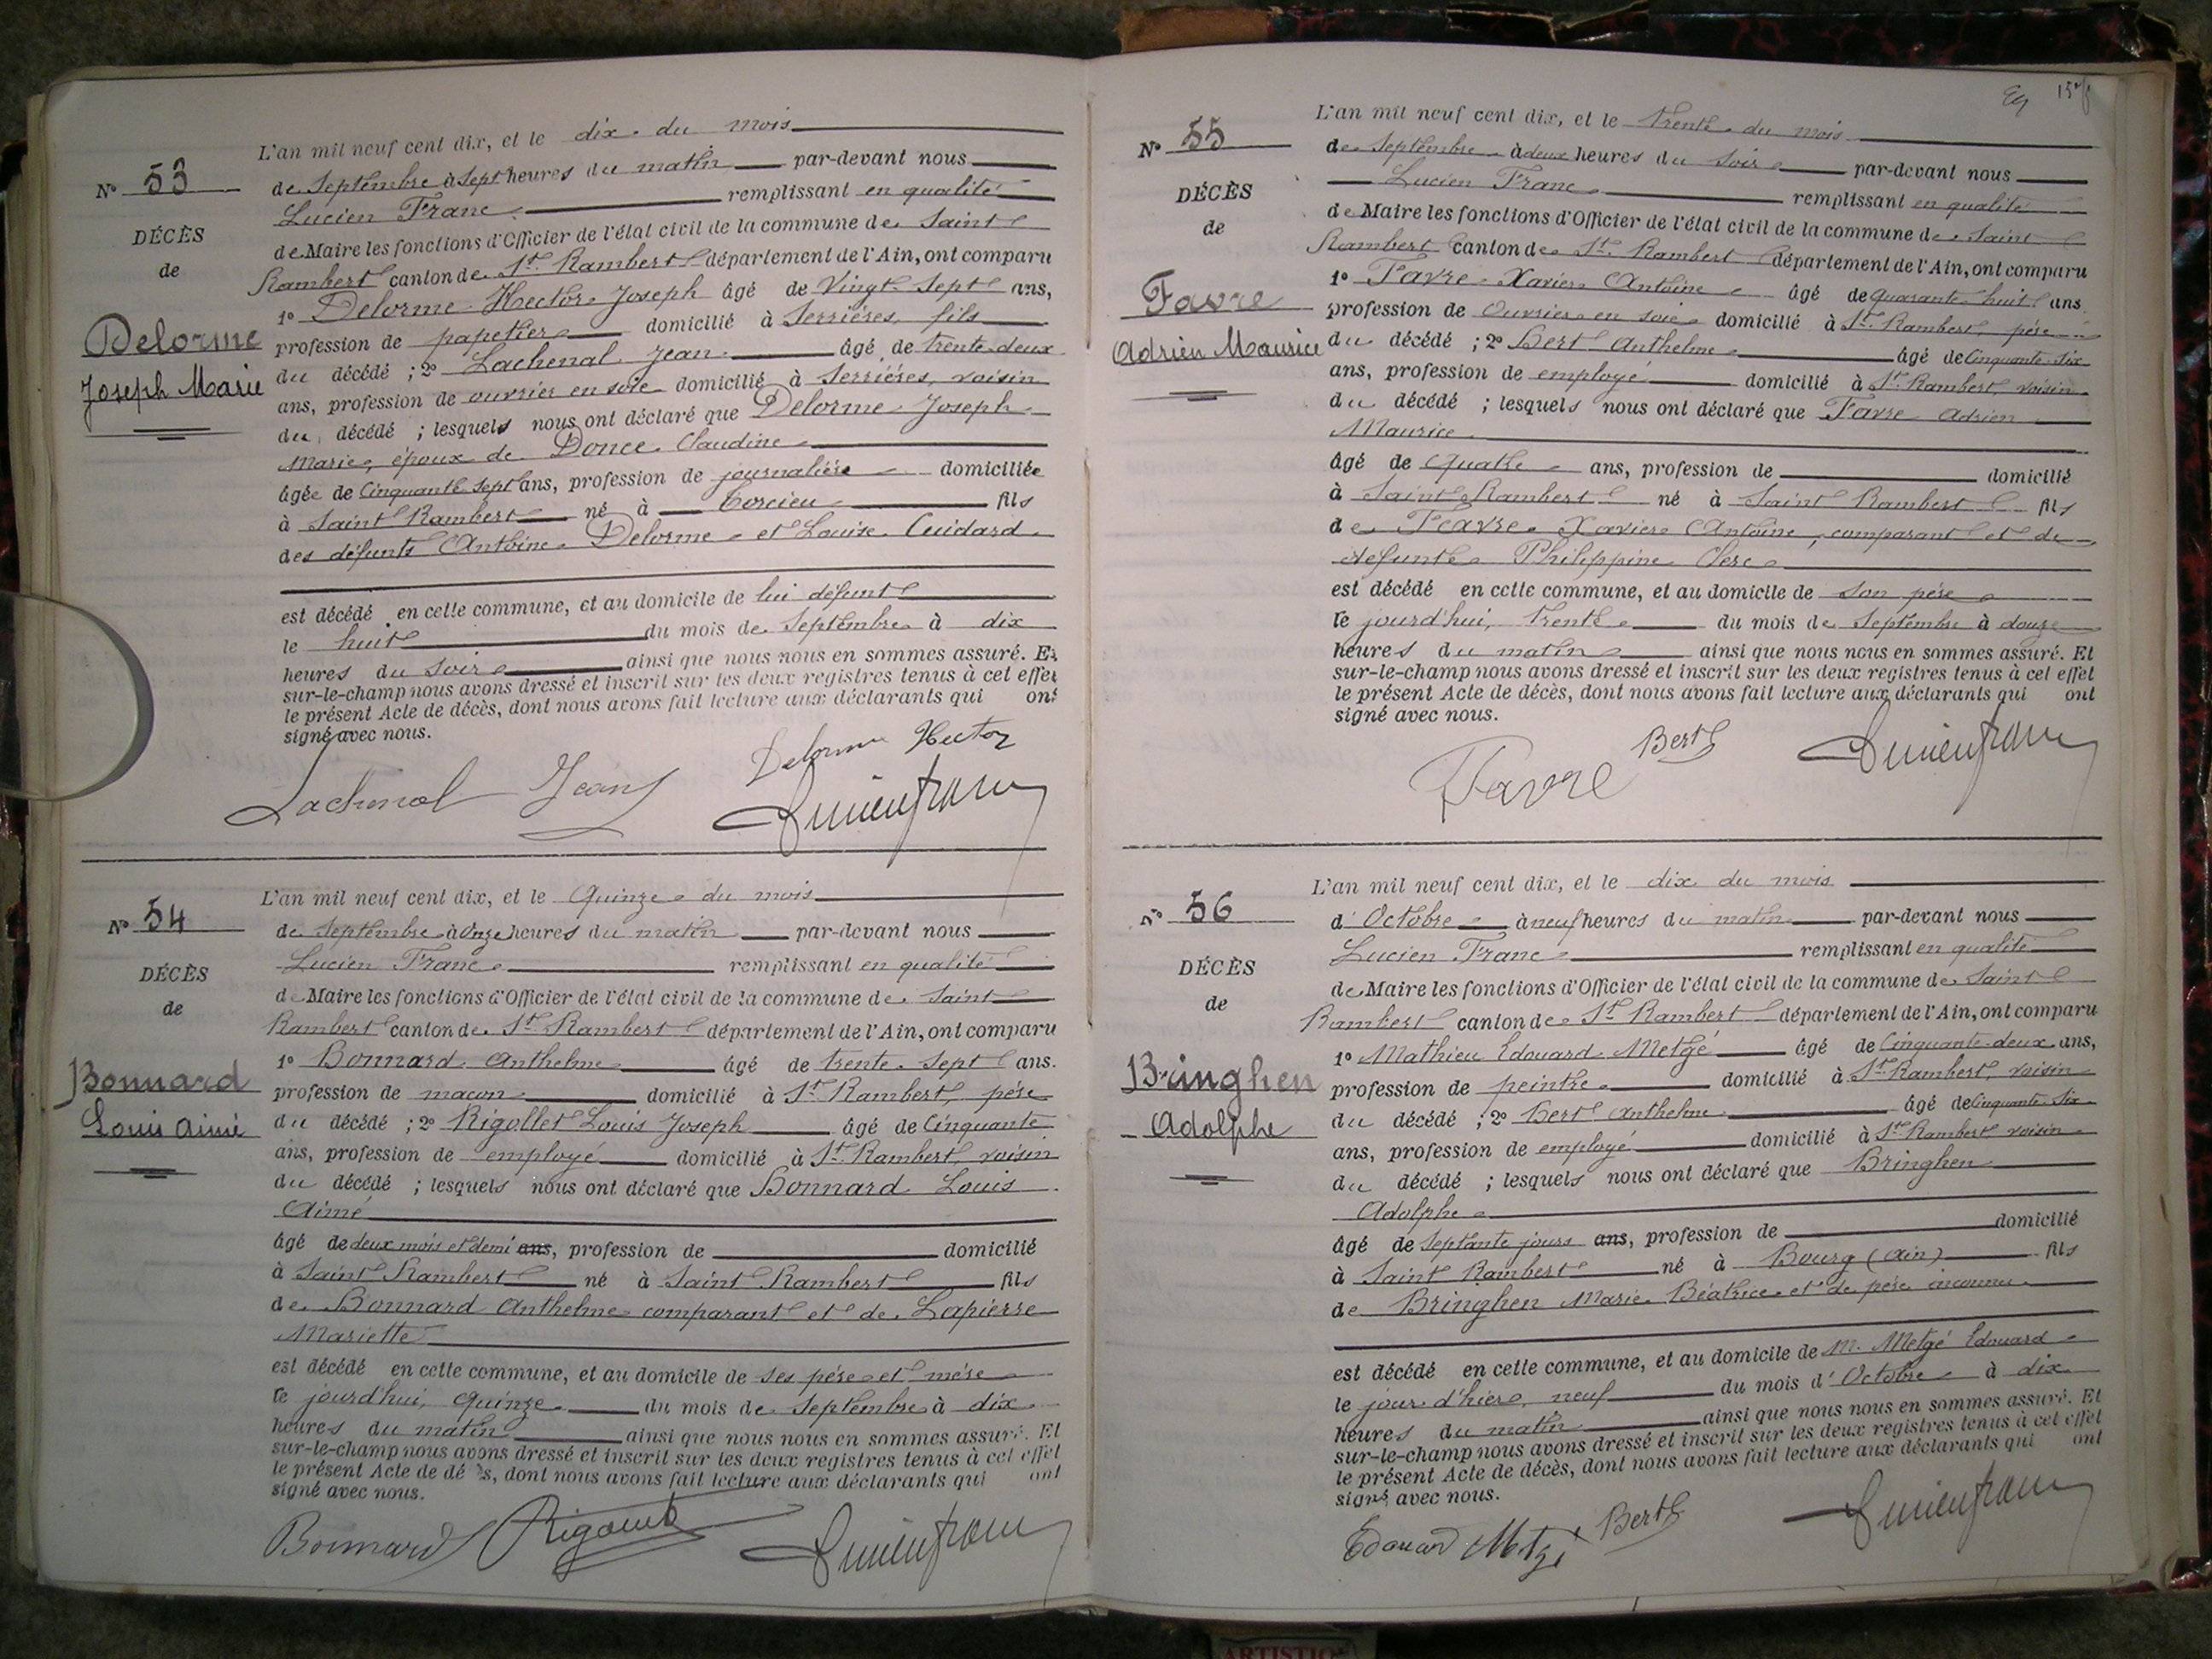 L'an mil neuf cent dix, et le dix du mois
N° 53
de Septembre à Sept heures du matin par-devant nous
Lucien Franc remplissant en qualité
DÉCÈS
de Maire les fonctions d'Officier de l'état civil de la commune de Saint
de
Rambert canton de St. Rambert département de l'Ain, ont comparu
1° Delorme Hector Joseph âgé de Vingt Sept ans,
Delorme
profession de papetier domicilié à Serrières, fils
Joseph Marie
du décédé ; 2° Lachenal Jean âgé de trente deux
ans, profession de ouvrier en soie domicilié à Serrières, voisin
du décédé ; lesquels nous ont déclaré que Delorme Joseph
Marie, époux de Donce Claudine
âgée de Cinquante Sept ans, profession de journalière domiciliée
à Saint Rambert né à Torcieu fils
des défunts Antoine Delorme et Louise Cuidard
est décédé en cette commune, et au domicile de lui défunt
le huit du mois de Septembre à dix
heures du soir ainsi que nous nous en sommes assuré. Et
sur-le-champ nous avons dressé et inscrit sur les deux registres tenus à cet effet
le présent Acte de décès, dont nous avons fait lecture aux déclarants qui ont
signé avec nous.
Delorme Hector
Lachenal Jean Lucien franc
L'an mil neuf cent dix, et le Quinze du mois
N° 54
de Septembre à Onze heures du matin par-devant nous
Lucien Franc remplissant en qualité
DÉCÈS
de Maire les fonctions d'Officier de l'état civil de la commune de Saint
de
Rambert canton de St. Rambert département de l'Ain, ont comparu
1° Bonnard Anthelme âgé de trente Sept ans.
Bonnard
profession de maçon domicilié à St. Rambert, père
Louis Aimé
du décédé ; 2° Rigollet Louis Joseph âgé de Cinquante
ans, profession de employé domicilié à St. Rambert, voisin
du décédé ; lesquels nous ont déclaré que Bonnard Louis
Aimé
âgé de deux mois et demi ans, profession de domicilié
à Saint Rambert né à Saint Rambert fils
de Bonnard Anthelme comparant et de Lapierre
Mariette
est décédé en cette commune, et au domicile de ses père et mère
le jourd'hui, quinze du mois de Septembre à dix
heures du matin ainsi que nous nous en sommes assuré. Et
sur-le-champ nous avons dressé et inscrit sur les deux registres tenus à cet effet
le présent Acte de décès, dont nous avons fait lecture aux déclarants qui ont
signé avec nous.
Bonnard Lucien franc
L'an mil neuf cent dix, et le trente du mois
N° 55
de Septembre à deux heures du soir par-devant nous
Lucien Franc remplissant en qualité
DÉCÈS
de Maire les fonctions d'Officier de l'état civil de la commune de Saint
de
Rambert canton de St. Rambert département de l'Ain, ont comparu
1° Favre Xavier Antoine âgé de quarante huit ans
Favre
profession de Ouvrier en soie domicilié à St. Rambert père
Adrien Maurice
du décédé ; 2° Bert Anthelme âgé de Cinquante Six
ans, profession de employé domicilié à St. Rambert, voisin
du décédé ; lesquels nous ont déclaré que Favre Adrien
Maurice
âgé de Quatre ans, profession de domicilié
à Saint Rambert né à Saint Rambert fils
de Favre Xavier Antoine, comparant et de
défunte Philippine Clerc
est décédé en cette commune, et au domicile de son père
le jourd'hui, trente du mois de Septembre à douze
heures du matin ainsi que nous nous en sommes assuré. Et
sur-le-champ nous avons dressé et inscrit sur les deux registres tenus à cet effet
le présent Acte de décès, dont nous avons fait lecture aux déclarants qui ont
signé avec nous.
Favre Bert Lucien franc
L'an mil neuf cent dix, et le dix du mois
N° 56
d'Octobre à neuf heures du matin par-devant nous
Lucien Franc remplissant en qualité
DÉCÈS
de Maire les fonctions d'Officier de l'état civil de la commune de Saint
de
Rambert canton de St. Rambert département de l'Ain, ont comparu
1° Mathieu Edouard Metgé âgé de Cinquante deux ans,
Bringhen
profession de peintre domicilié à St. Rambert, voisin
Adolphe
du décédé ; 2° Bert Anthelme âgé de Cinquante Six
ans, profession de employé domicilié à St. Rambert voisin
du décédé ; lesquels nous ont déclaré que Bringhen
Adolphe
âgé de Septante jours ans, profession de domicilié
à Saint Rambert né à Bourg (Ain) fils
de Bringhen Marie Béatrice et de père inconnu
est décédé en cette commune, et au domicile de M. Metgé Edouard
le jour d'hier, neuf du mois d'Octobre à dix
heures du matin ainsi que nous nous en sommes assuré. Et
sur-le-champ nous avons dressé et inscrit sur les deux registres tenus à cet effet
le présent Acte de décès, dont nous avons fait lecture aux déclarants qui ont
signé avec nous.
Edouard Metgé Bert Lucien franc
ARTISTIC